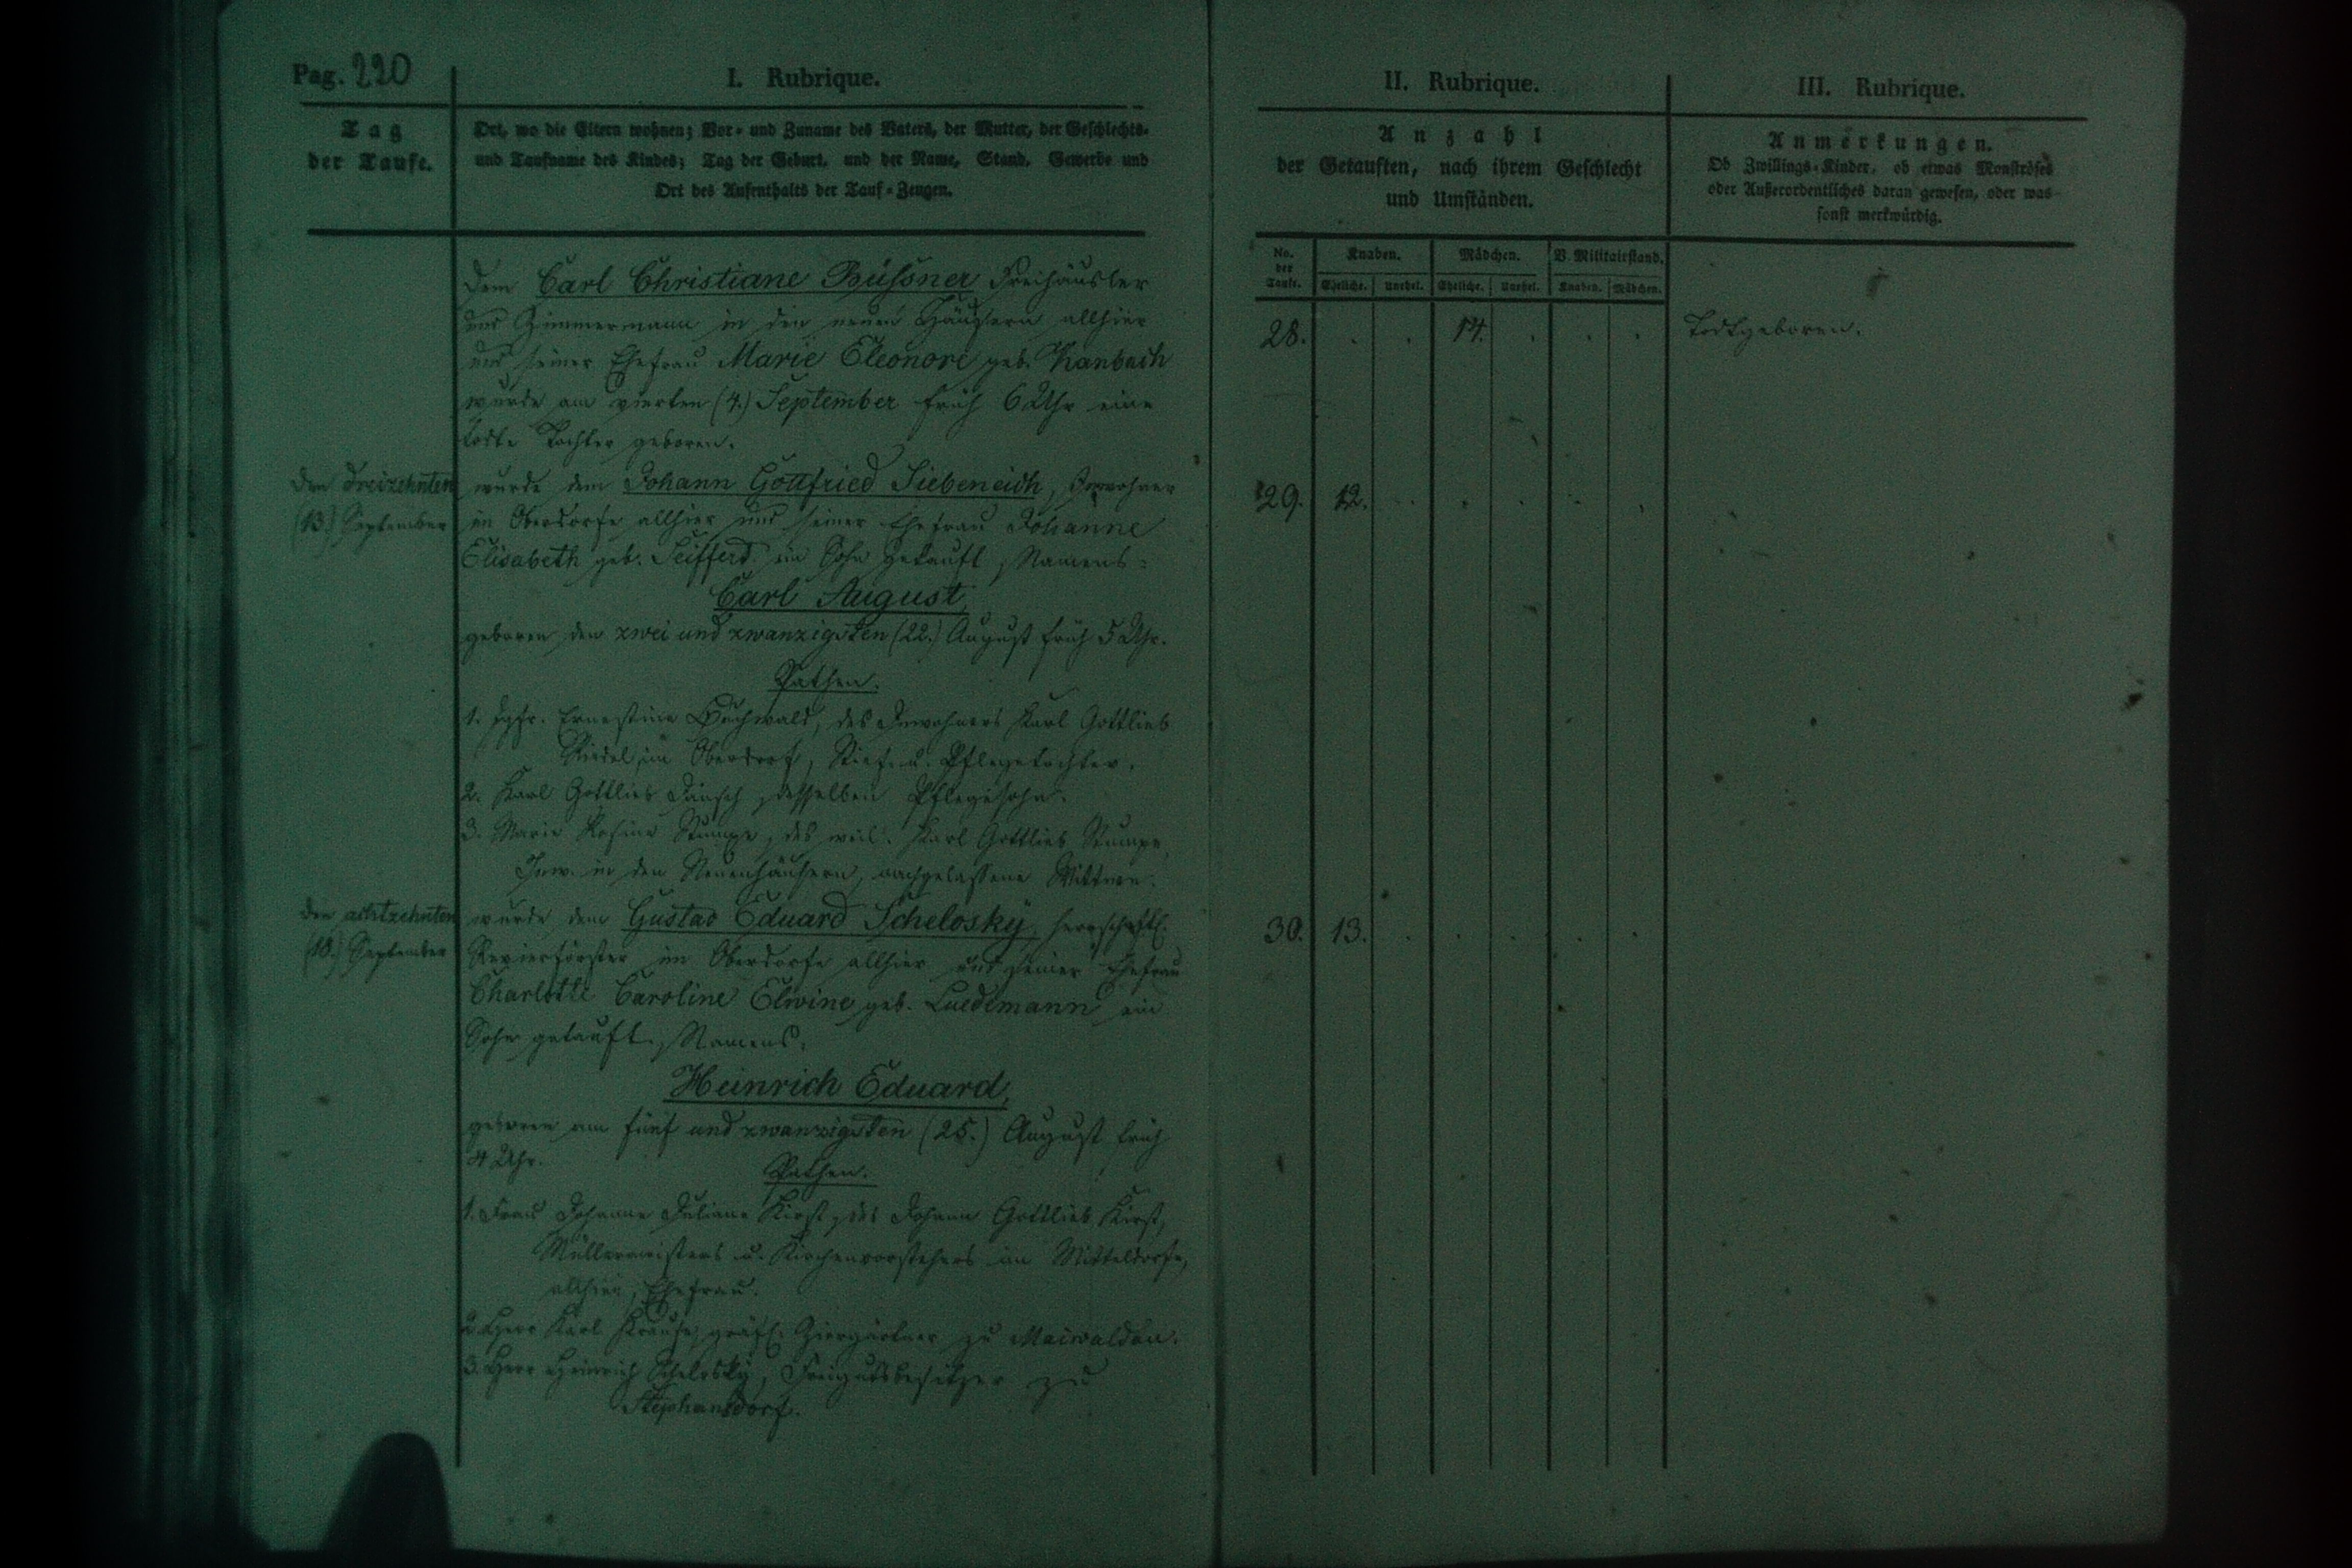 Pag. 220
I. Rubrique.
Tag
der Taufe.
Ort, wo die Eltern wohnen; Vor- und Zuname des Vaters, der Mutter, der Geschlechts-
und Taufname des Kindes; Tag der Geburt, und der Name, Stand, Gewerbe und
Ort des Aufenthalts der Tauf-Zeugen.
Dem Carl Christiane Büssner Freihäusler
und Zimmermann in den neuen Häusern allhier
und seiner Ehefrau Marie Eleonore geb. Hanbach
wurde am vierten (4.) September früh 6 Uhr eine
todte Tochter geboren.
den dreizehnten
(13.) September
wurde dem Johann Gottfried Siebeneich, Inwohner
im Oberdorfe allhier und seiner Ehefrau Johanne
Elisabeth geb. Seifferd ein Sohn getauft, Namens:
Carl August,
geboren den zwei und zwanzigsten (22.) August früh 5 Uhr.
Pathen.
1. Jgfr. Ernestine Buchwald, des Inwohners Karl Gottlieb
Riedel im Oberdorf, Stief- u. Pflegetochter.
2. Karl Gottlieb, desselben Pflegesohn.
3. Marie Rosine Stumpe, des weil. Karl Gottlieb Stumpe,
Inw. in den Neuenhäusern, nachgelassene Wittwe.
den achtzehnten
(18.) September
wurde dem Gustav Eduard Schelosky, herrschaftl.
Revierförster im Oberdorfe allhier und seiner Ehefrau
Charlotte Caroline Elwine geb. Luedemann ein
Sohn getauft, Namens:
Heinrich Eduard,
geboren am fünf und zwanzigsten (25.) August früh
4 Uhr.
Pathen.
1. Frau Johanne Juliane Kirst, des Johann Gottlieb Kirst,
Müllermeisters u. Kirchenvorstehers im Mitteldorfe,
allhier, Ehefrau.
2. Herr Karl Krause, gräfl. Ziergärtner zu Maiwaldau.
3. Herr Heinrich Schelosky, Freigutsbesitzer zu
Stephansdorf.
II. Rubrique.
Anzahl
der Getauften, nach ihrem Geschlecht
und Umständen.
No. der Taufe.
Knaben.
Mädchen.
V. Militairstand.
Eheliche. Unehel. Eheliche. Unehel. Knaben. Mädchen.
28. . . 14. . . .
29. 12. . . . . .
30. 13. . . . . .
III. Rubrique.
Anmerkungen.
Ob Zwillings-Kinder, ob etwas Monströses
oder Außerordentliches daran gewesen, oder was
sonst merkwürdig.
†
Todtgeboren.